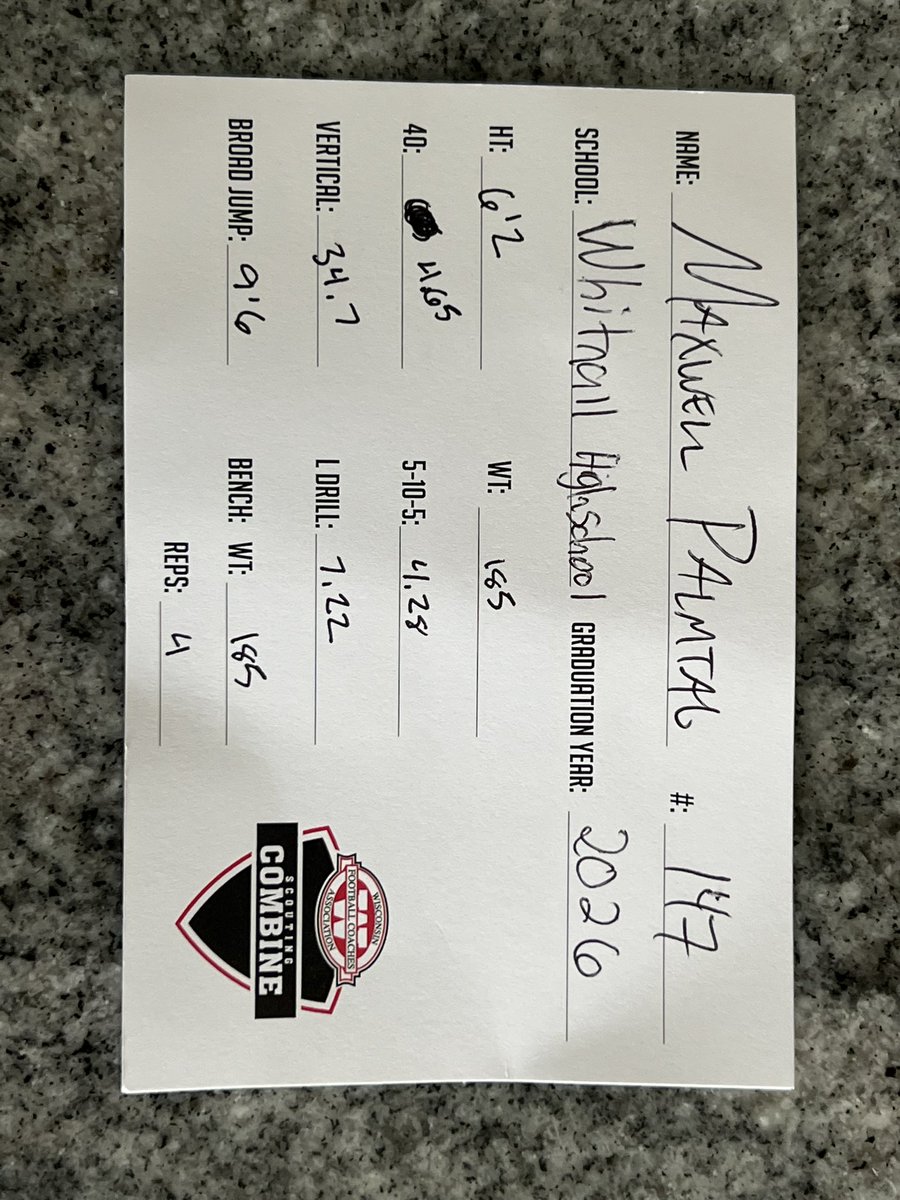 NAME: MAXWELL PALMTAG #: 147
SCHOOL: Whitnall Highschool GRADUATION YEAR: 2026
HT: 6'2 WT: 185
40: 4.65 5-10-5: 4.28
VERTICAL: 34.7 L DRILL: 7.22
BROAD JUMP: 9'6 BENCH: WT: 185
REPS: 4
WISCONSIN
FOOTBALL COACHES
ASSOCIATION
SCOUTING
COMBINE